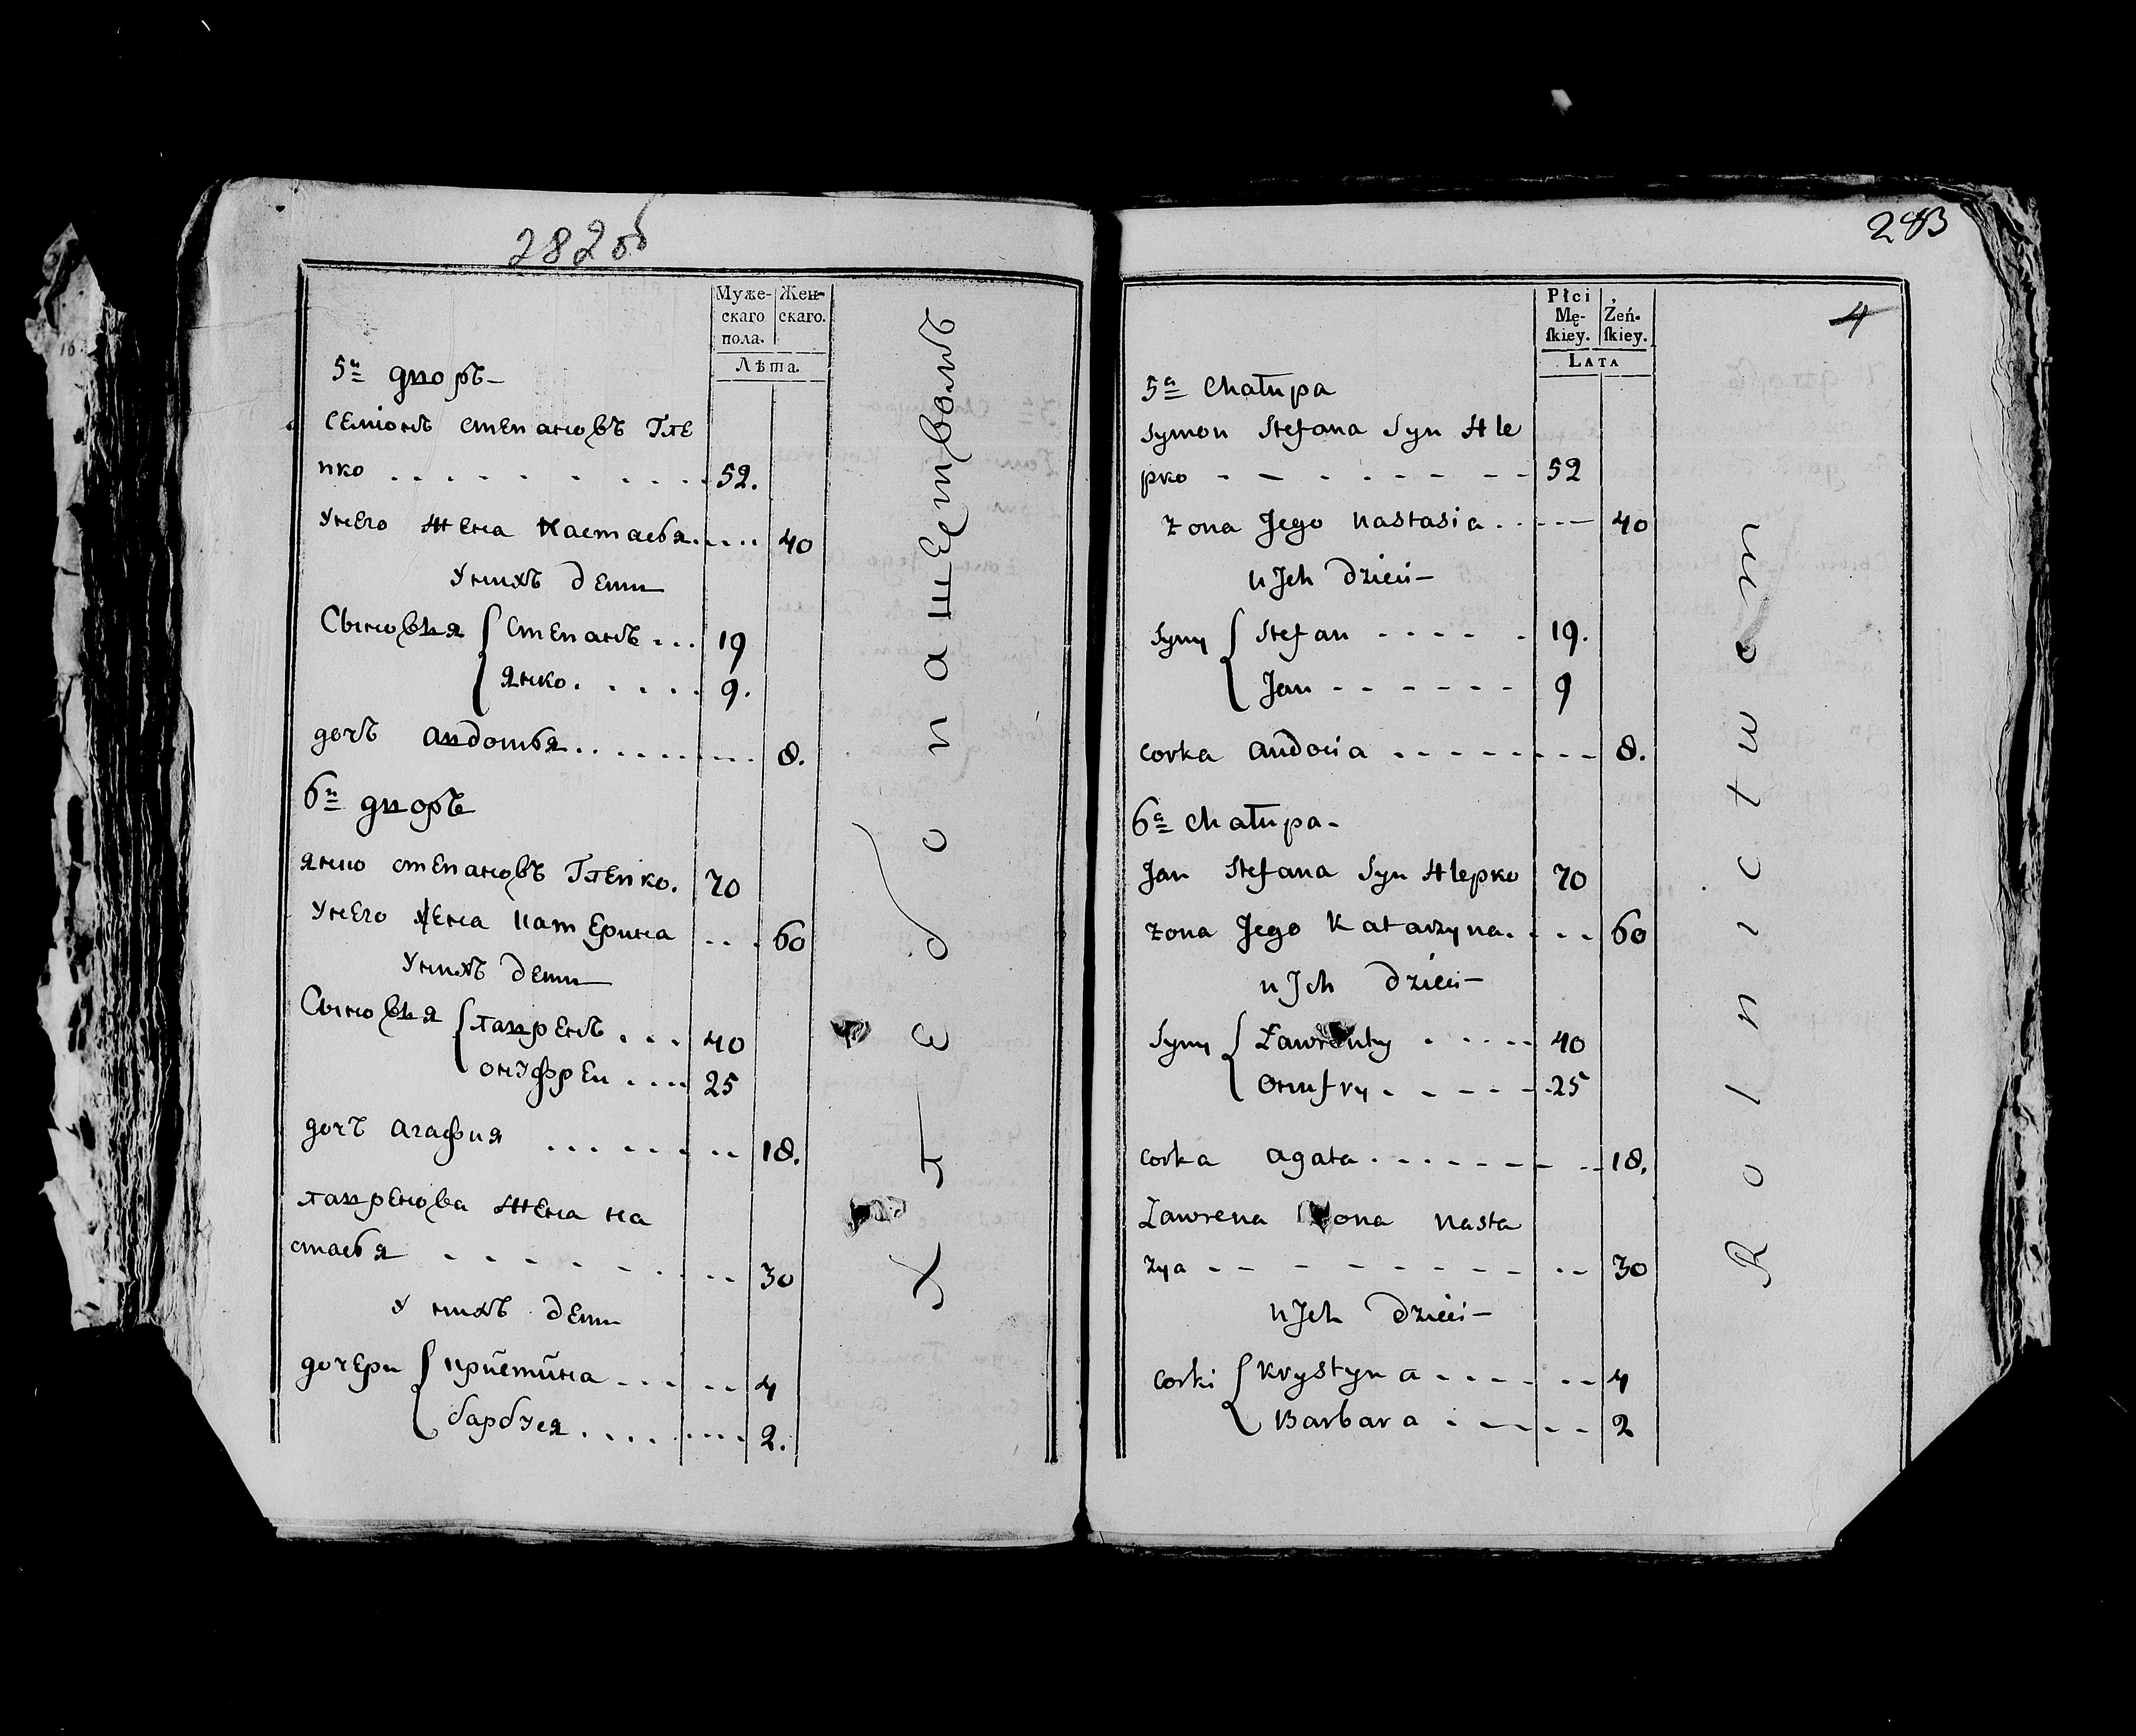 282 об
Муже-
скаго
пола.
Жен-
скаго.
Лѣта.
5й дворъ
Семіонъ степановъ Гле
пко 52.
Унего жена Настасья 40
Унихъ дети
Сыновья { степанъ 19
янко 9.
дочъ авдотья 8.
6й дворъ
янко степановъ Глепко. 70
Унего жена Катерина 60
Унихъ дети
Сыновья { лавренъ 40
онуфреи 25
дочъ агафия 18.
лавренова жена на
стасья 30
У нихъ дети
дочери { кристина 4
барбуся 2.
Хлебопашествомъ
283
4
Płci
Mę-
ſkiey.
Żeń-
ſkiey.
LATA
5a Chałupa
Symon Stefana Syn Hle
pko 52
zona Jego Nastasia 40
u Jch dzieci
Syny { Stefan 19.
Jan 9
corka audocia 8.
6a chałupa
Jan Stefana Syn Hlepko 70
zona Jego Katarzyna 60
u Jch dzieci
Syny { 40
Onufry 25
corka agata 18.
Ławrena nasta
zya 30
u Jch dzieci
corki { Krystyna 4
Barbara 2
Rolnictwem